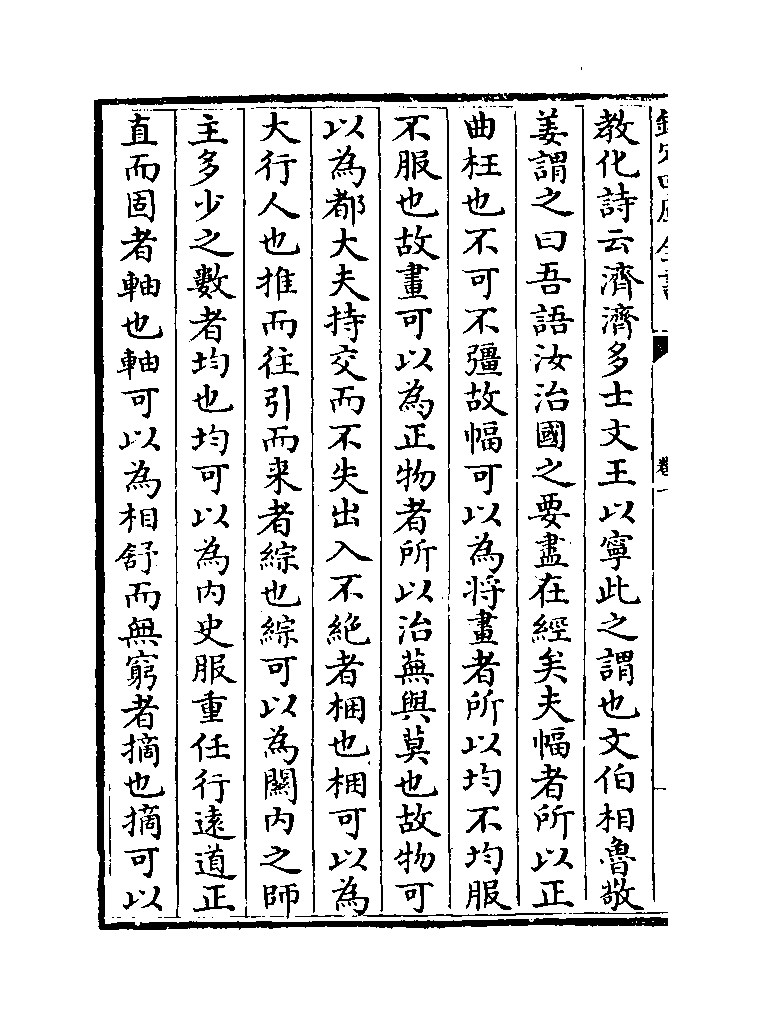 教化詩云濟濟多士文王以寧此之謂也文伯相魯敬
姜謂之曰吾語汝治國之要盡在經矣夫幅者所以正
曲枉也不可不彊故幅可以為將畫者所以均不均服
不服也故畫可以為正物者所以治蕪與莫也故物可
以為都大夫持交而不失出入不絶者梱也梱可以為
大行人也推而往引而来者綜也綜可以為關内之師
主多少之數者均也均可以為内史服重任行遠道正
直而固者軸也軸可以為相舒而無窮者摘也摘可以